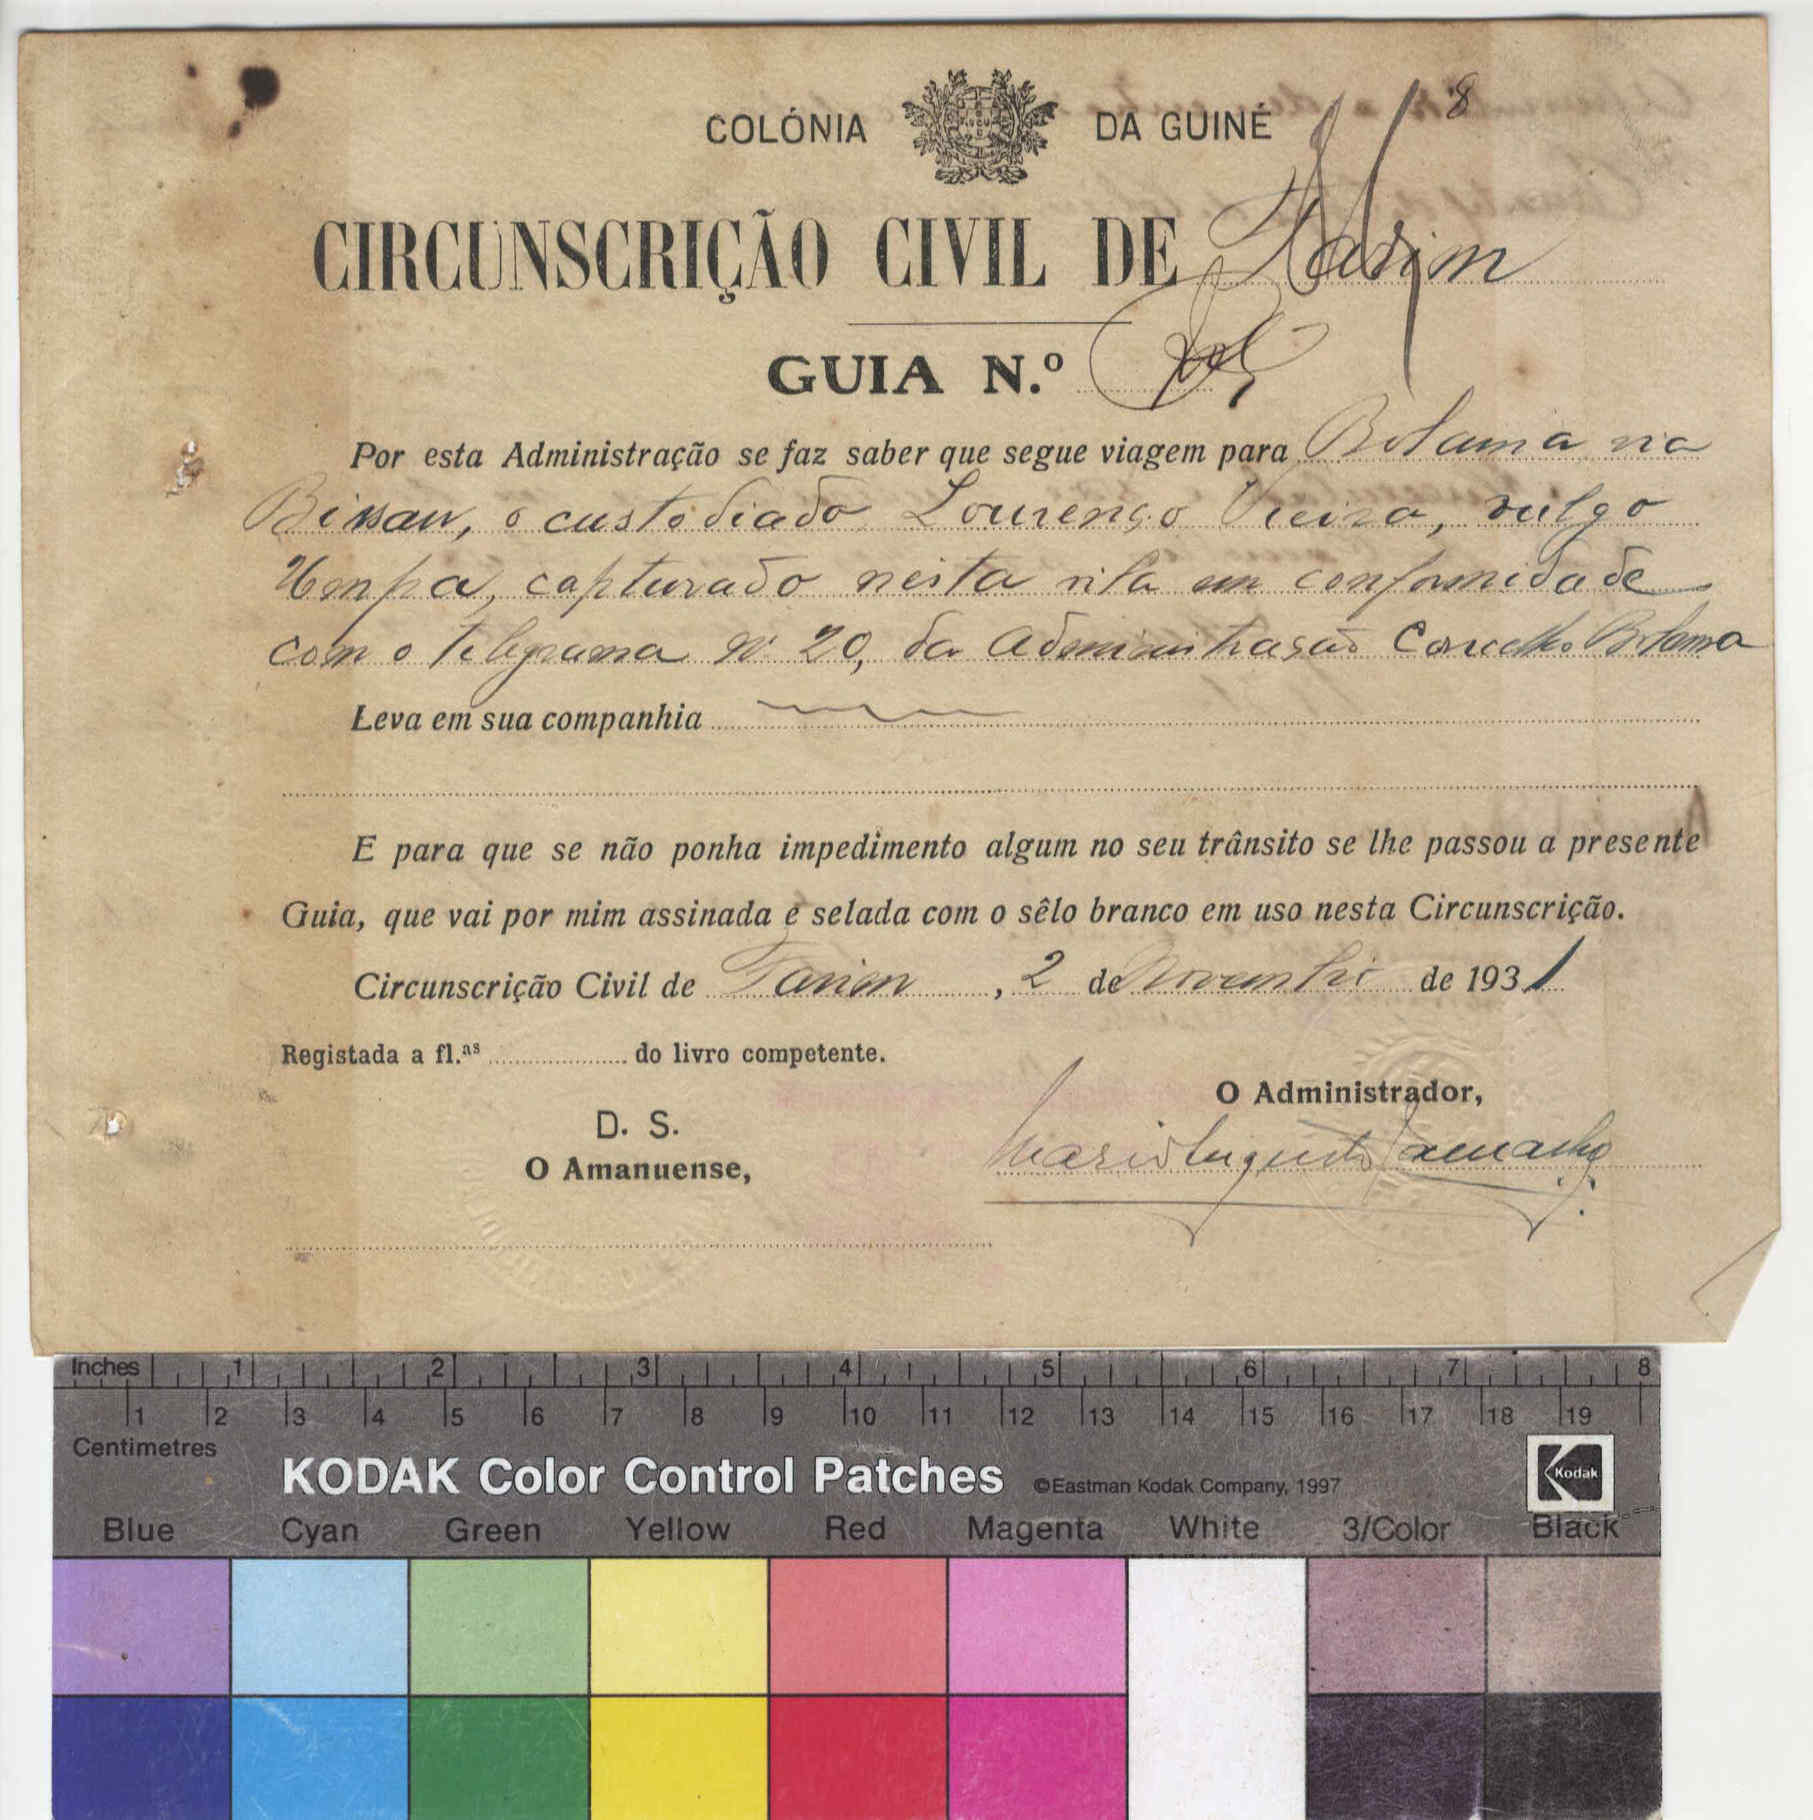 8
COLÓNIA DA GUINÉ
CIRCUNSCRIÇÃO CIVIL DE Farim
GUIA N.º
Por esta Administração se faz saber que segue viagem para Bolama via
Bissau, o custodiado Lourenço Vieira, vulgo
Umpa, capturado nesta vila em conformidade
com o telegrama nº 20, da Administração Concelho Bolama
Leva em sua companhia
E para que se não ponha impedimento algum no seu trânsito se lhe passou a presente
Guia, que vai por mim assinada e selada com o sêlo branco em uso nesta Circunscrição.
Circunscrição Civil de Farim, 2 de Novembro de 1931
Registada a fl.as do livro competente.
O Administrador,
D. S.
Mario Augusto
O Amanuense,
Inches 1 2 3 4 5 6 7 8
1 2 3 4 5 6 7 8 9 10 11 12 13 14 15 16 17 18 19
Centimetres
KODAK Color Control Patches ©Eastman Kodak Company, 1997 Kodak
Blue Cyan Green Yellow Red Magenta White 3/Color Black